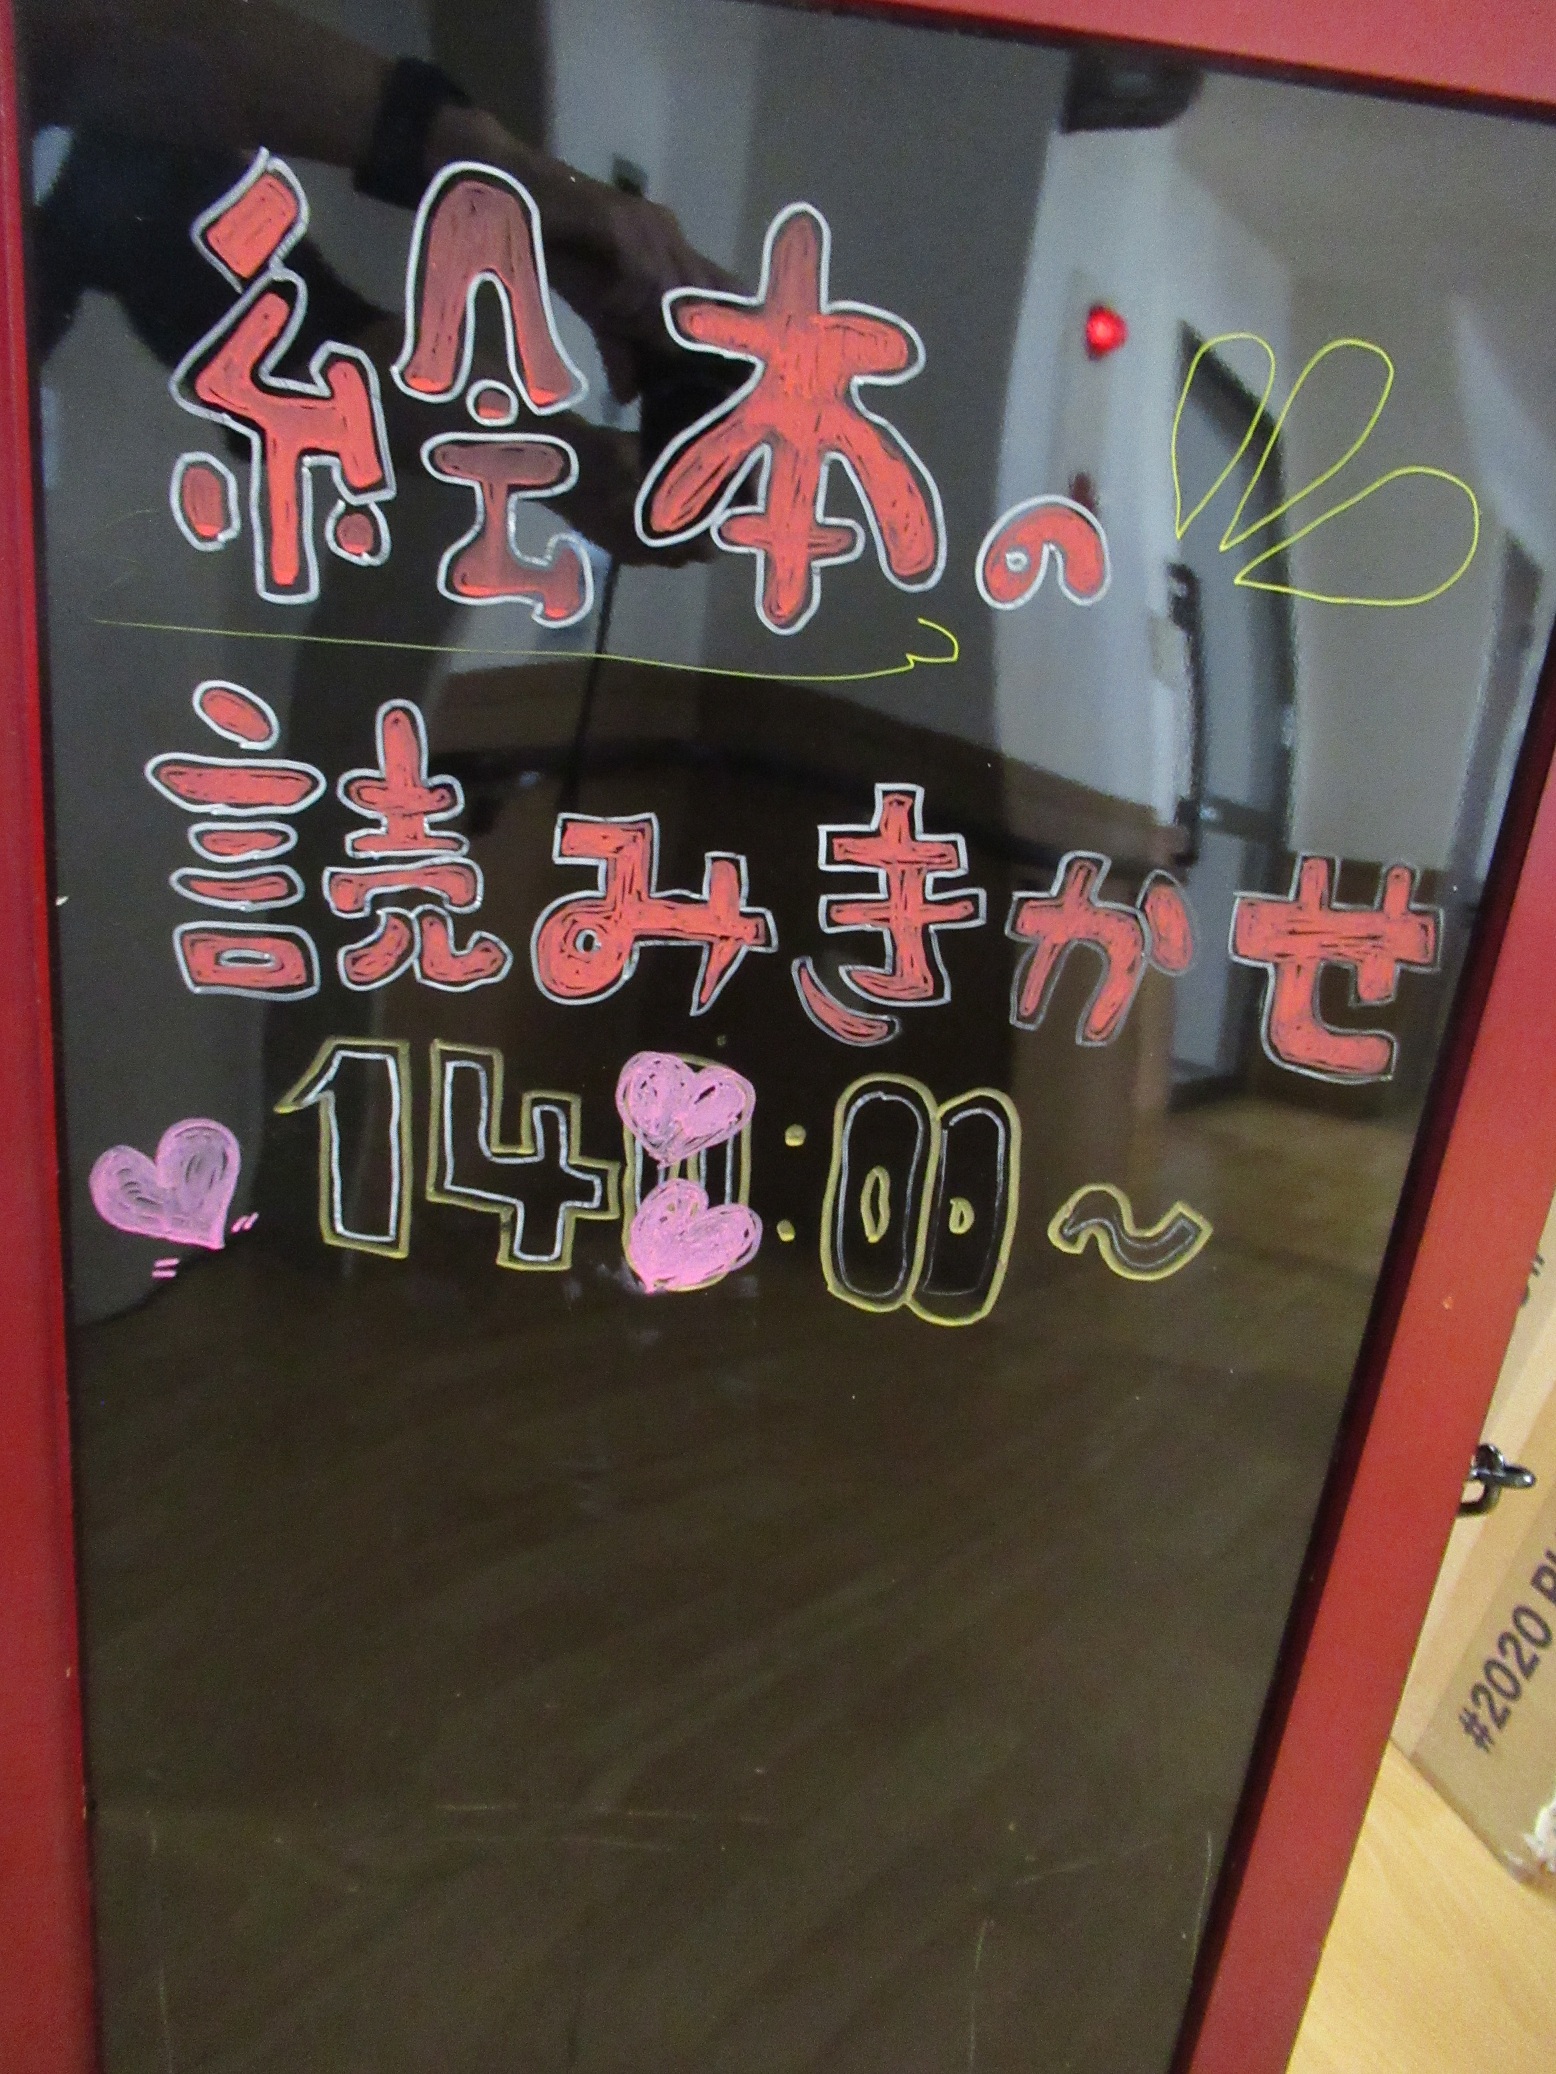 絵本の
読みきかせ
14:00~
#2020